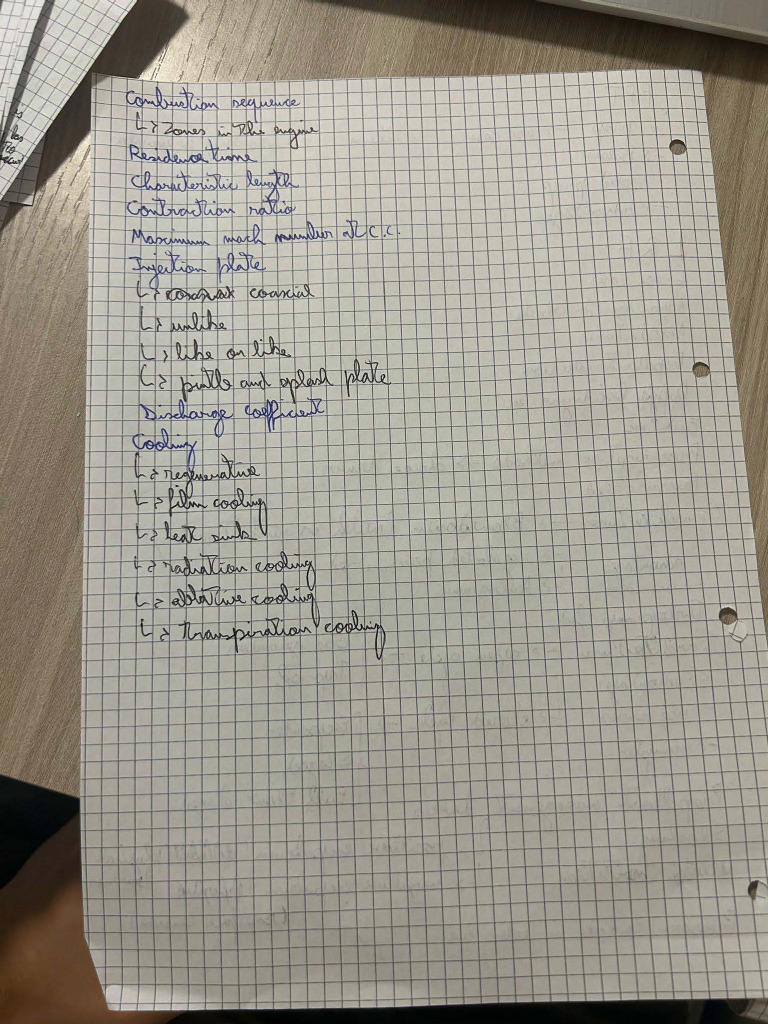 Combustion sequence
↳ Zones in the engine
Residence time
Characteristic length
Contraction ratio
Maximum mach number at C.C.
Injection plate
↳ coaxial
↳ unlike
↳ like on like
↳ and splash plate
Discharge coefficient
Cooling
↳ regenerative
↳ film cooling
↳ heat sink
↳ radiation cooling
↳ ablative cooling
↳ transpiration cooling